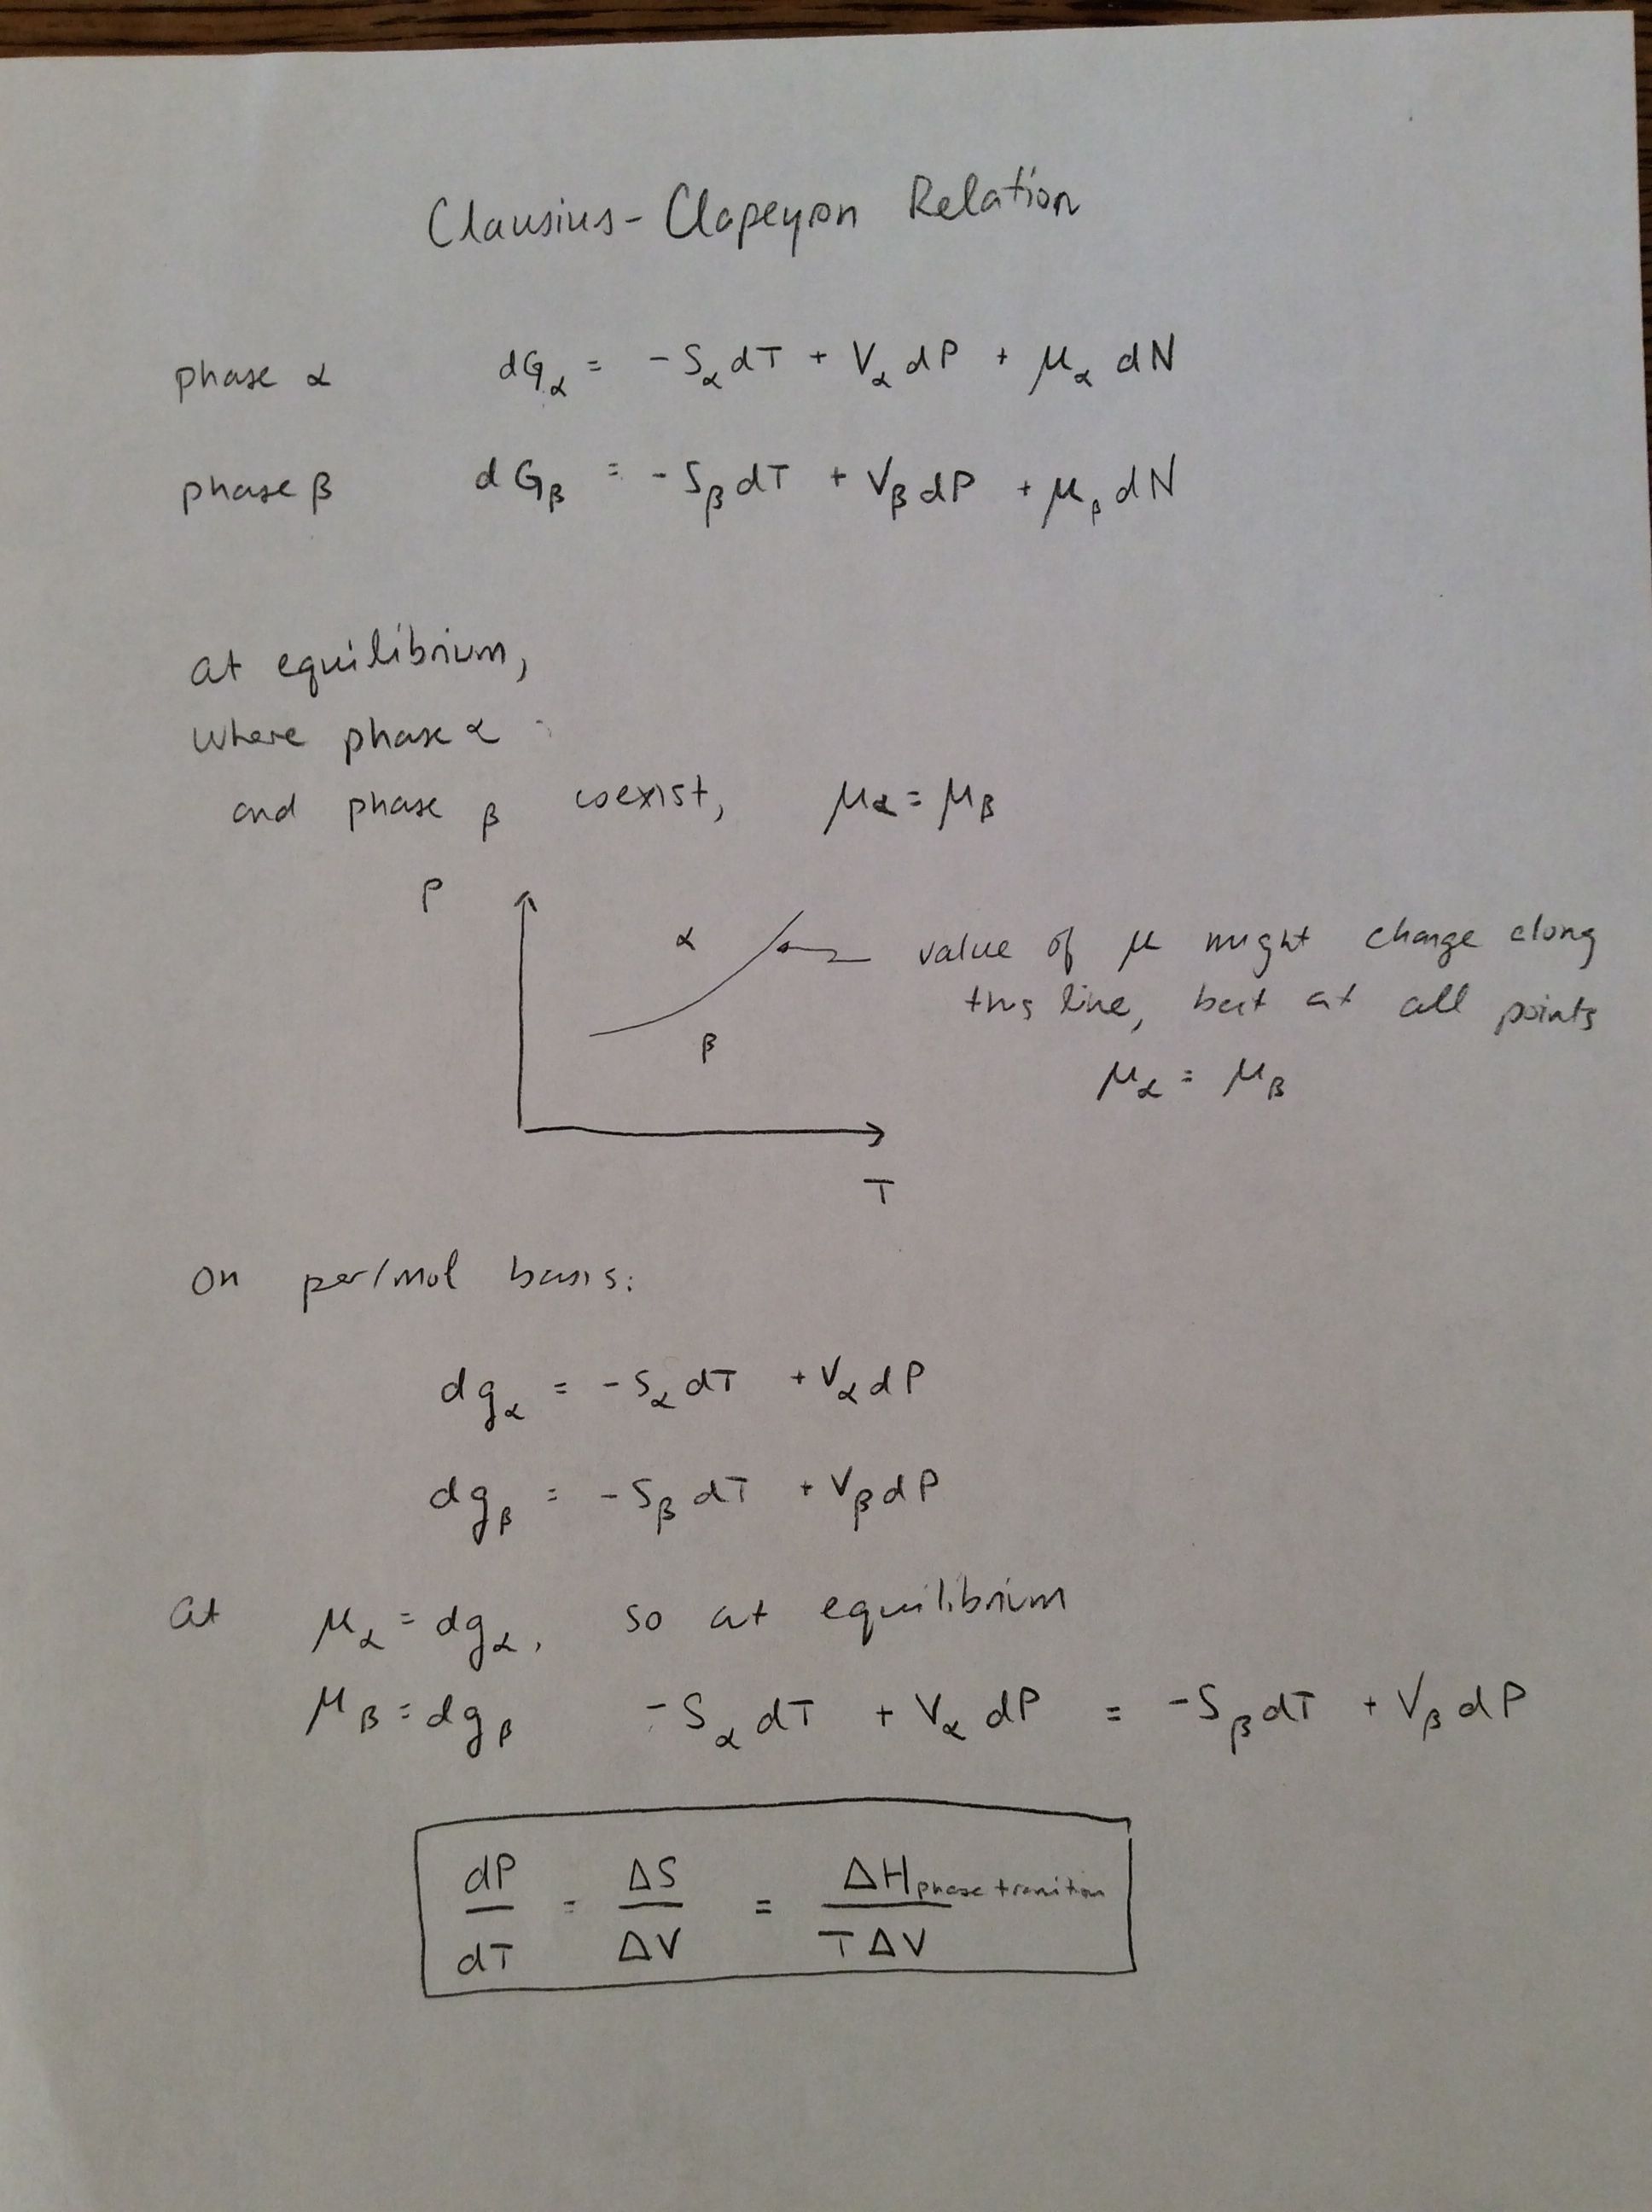 Clausius-Clapeyron Relation
phase α dG_α = -S_α dT + V_α dP + μ_α dN
phase β dG_β = -S_β dT + V_β dP + μ_β dN
at equilibrium,
where phase α
and phase β coexist, μ_α = μ_β
P
α
value of μ might change along
this line, but at all points
β
μ_α = μ_β
T
on per/mol basis:
dg_α = -S_α dT + V_α dP
dg_β = -S_β dT + V_β dP
at μ_α = dg_α, so at equilibrium
μ_β = dg_β -S_α dT + V_α dP = -S_β dT + V_β dP
dP/dT = ΔS/ΔV = ΔH_phase transition/TΔV